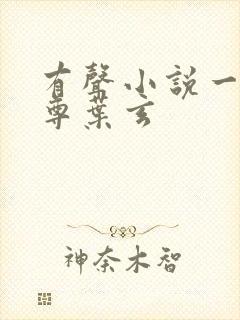 有聲小說一
尊葉玄
神奈木智